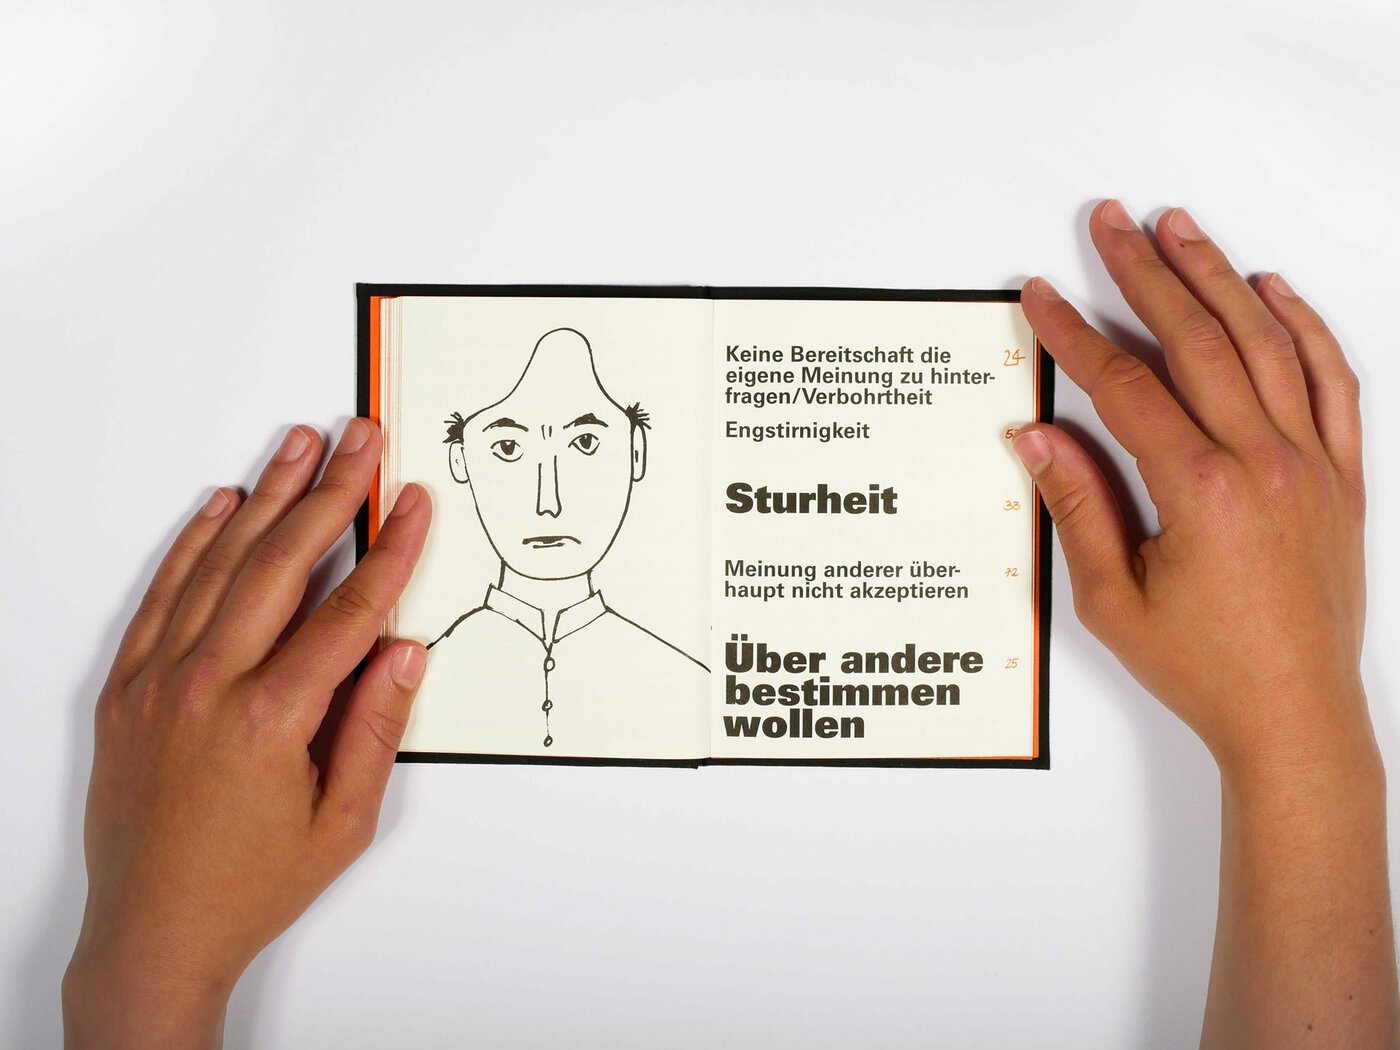 Keine Bereitschaft die 24
eigene Meinung zu hinter-
fragen/Verbohrtheit
Engstirnigkeit
Sturheit 33
Meinung anderer über- 72
haupt nicht akzeptieren
Über andere 25
bestimmen
wollen